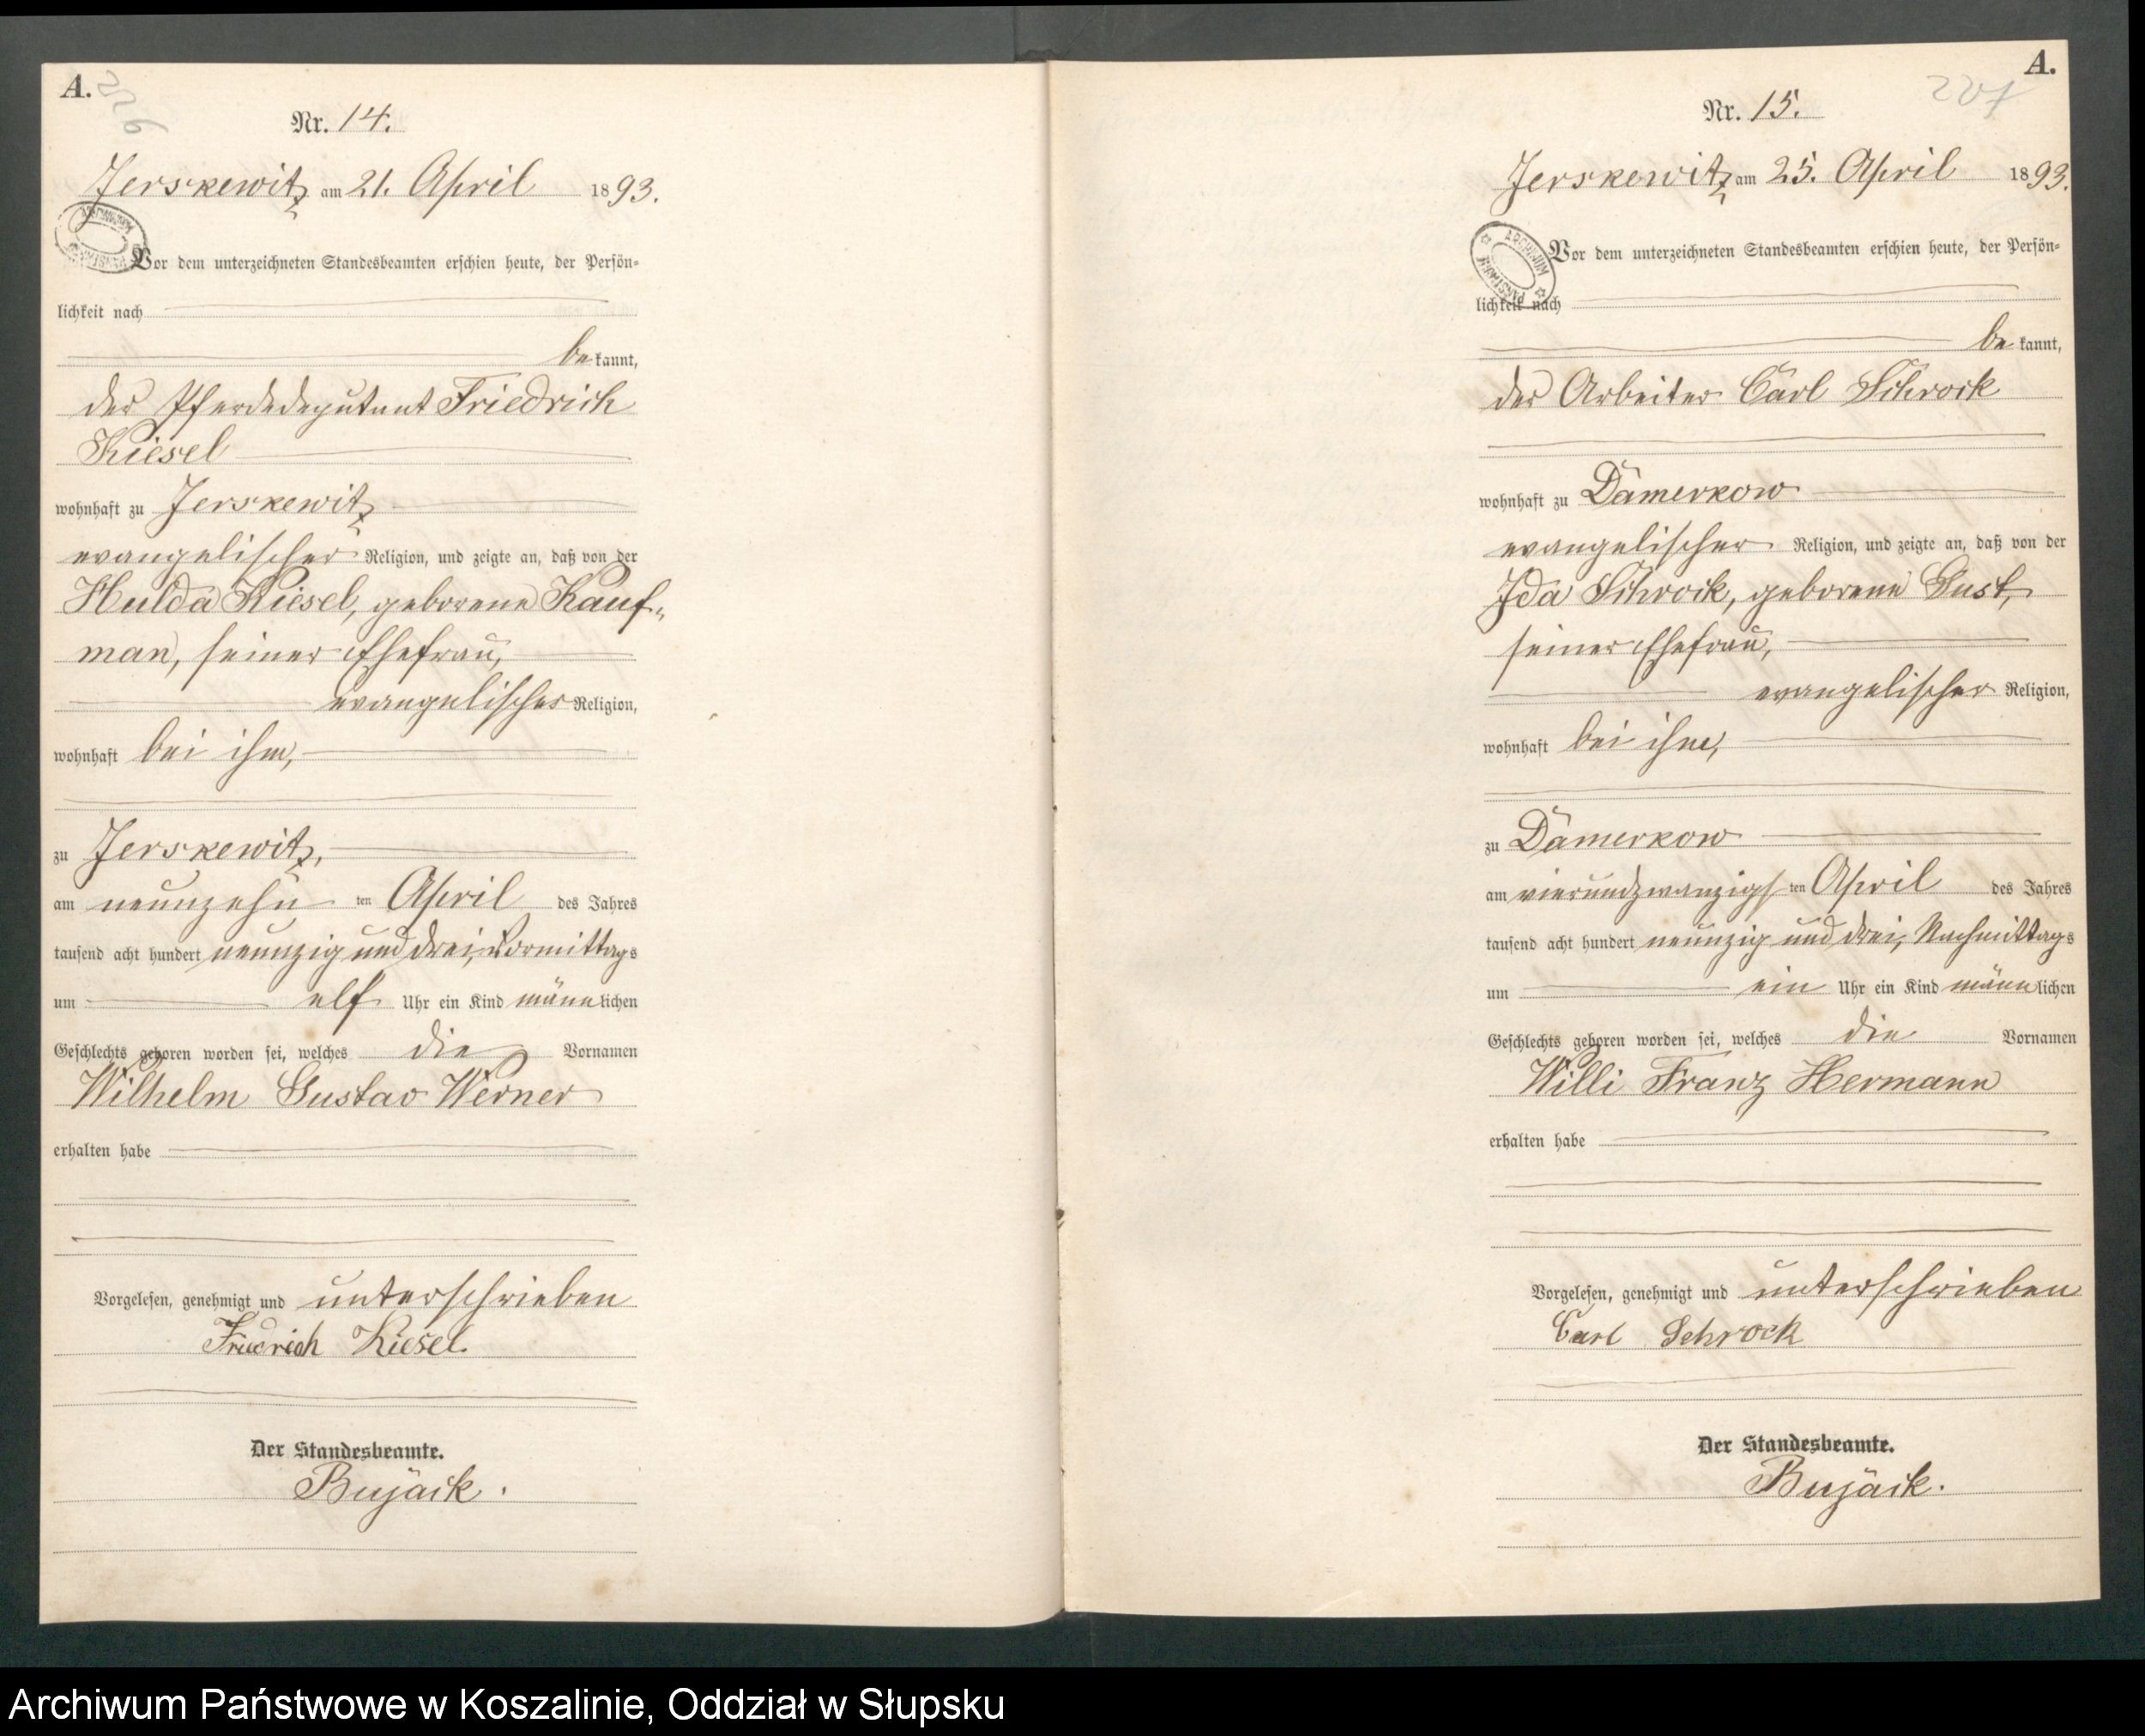 A.
226
Nr. 14.
Jerskewitz am 21. April 1893.
ARCHIWUM
Vor dem unterzeichneten Standesbeamten erschien heute, der Persön-
lichkeit nach
bekannt,
der Pferdedeputant Friedrich
Kiesel
wohnhaft zu Jerskewitz
evangelischer Religion, und zeigte an, daß von der
Hulda Kiesel, geborene Kauf-
man, seiner Ehefrau,
evangelischer Religion,
wohnhaft bei ihm,
zu Jerskewitz,
am neunzehnten April des Jahres
tausend acht hundert neunzig und drei, Vormittags
um elf Uhr ein Kind männlichen
Geschlechts geboren worden sei, welches die Vornamen
Wilhelm Gustav Werner
erhalten habe
Vorgelesen, genehmigt und unterschrieben
Friedrich Kiesel.
Der Standesbeamte.
Bujack.
A.
227
Nr. 15.
Jerskewitz am 25. April 1893.
ARCHIWUM
Vor dem unterzeichneten Standesbeamten erschien heute, der Persön-
lichkeit nach
bekannt,
der Arbeiter Carl Schrock
wohnhaft zu Dämerkow
evangelischer Religion, und zeigte an, daß von der
Ida Schrock, geborene Gust,
seiner Ehefrau,
evangelischer Religion,
wohnhaft bei ihm,
zu Dämerkow
am vierundzwanzigsten April des Jahres
tausend acht hundert neunzig und drei, Nachmittags
um ein Uhr ein Kind männlichen
Geschlechts geboren worden sei, welches die Vornamen
Willi Franz Hermann
erhalten habe
Vorgelesen, genehmigt und unterschrieben
Carl Schrock
Der Standesbeamte.
Bujack.
Archiwum Państwowe w Koszalinie, Oddział w Słupsku